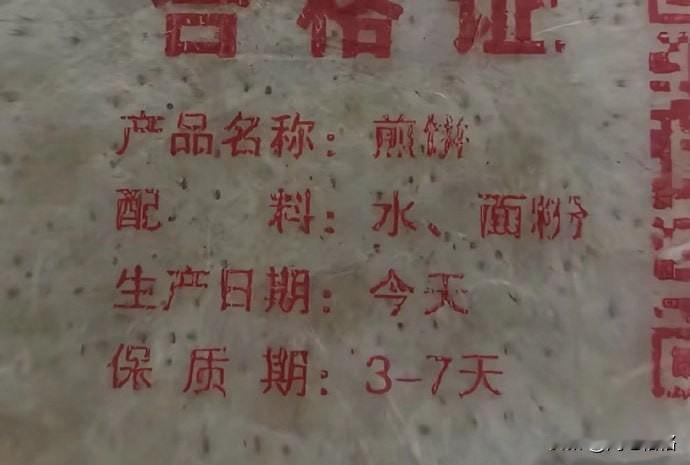 合格证
产品名称：煎饼
配 料：水、面粉
生产日期：今天
保质期：3-7天